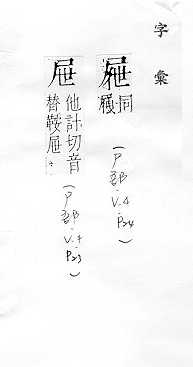 字彙
屜同
屧
(尸部.V.4.P24)
屉他計切音
替鞍屉
(尸部.V.4.P23)